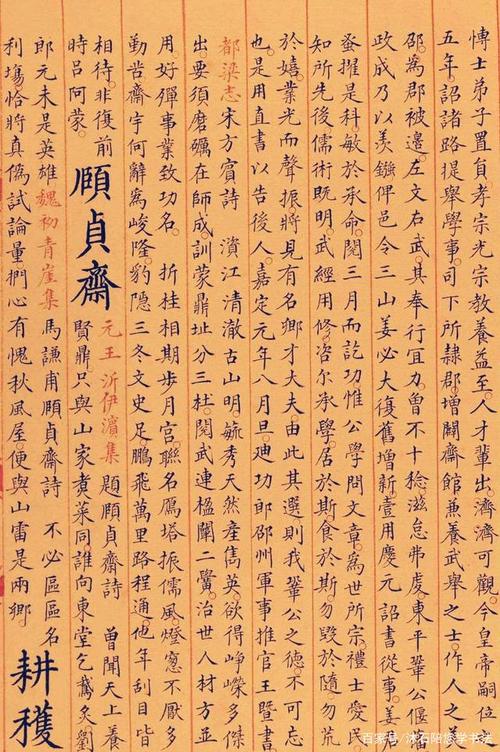 博士弟子置負孝宗光宗教養益至人才輩出濟濟可觀今皇帝嗣位
五年詔諸路提舉學事司下所隸郡增闢齋館兼養武舉之士作人之
邵為郡被邊左文右武其奉行宜力曾不十稔滋怠弗虔東平鞏公偃
政成乃以羨鏹俾邑令三山姜必大復舊增新壹用慶元詔書從事姜
蚤擢是科敏於承命閱三月而訖功惟公學問文章為世所宗禮士愛民
知所先後儒術既明武經用修咨尔承學居於斯食於斯勿毀於隨勿荒
於嬉業光而聲振將見有名鄉才大夫由此其選則我鞏公之德不可忘
也是用直書以告後人嘉定元年八月旦迪功郎邵州軍事推官王暨書
都梁志宋方賓詩 濱江清澈古山明毓秀天然產雋英欲得崢嶸多傑
出要須磨礪在師成訓蒙鼎址分三杜閱武連楹闢二黌治世人材方並
用好殫事業致功名 折桂相期步月宮聯名鴈塔振儒風燈窻不厭多
勤苦齋宇何辭為峻隆豹隱三冬文史足鵬飛萬里路程通他年刮目皆
相待非復前
時吕阿蒙
頤貞齋
元王沂伊濱集 題頤貞齋詩 曾聞天上養
賢鼎只與山家煮菜同誰向東堂乞鵞炙劉
郎元未是英雄 魏初青崖集 馬謙甫頤貞齋詩 不必區區名
利塲恰將真偽試論量捫心有愧秋風屋便與山雷是兩鄉
耕穫
百家号/沐石陪您学书法